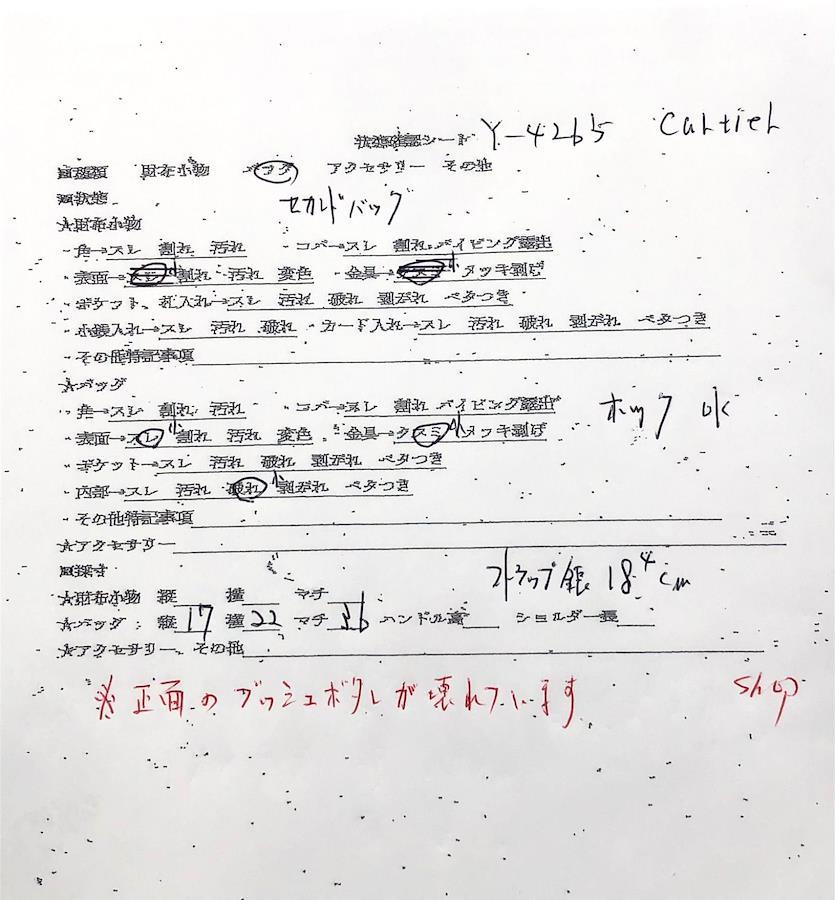 状態確認シート Y-4265 Cartier
■種類 財布小物 バッグ アクセサリー その他
■状態 セカンドバッグ
★財布小物
・角→スレ 割れ 汚れ ・コバ→スレ 割れ パイピング露出
・表面→スレ 小 割れ 汚れ 変色 ・金具→クスミ 小 メッキ剥げ
・ポケット、札入れ→スレ 汚れ 破れ 剥がれ ベタつき
・小銭入れ→スレ 汚れ 破れ ・カード入れ→スレ 汚れ 破れ 剥がれ ベタつき
・その他特記事項
★バッグ
・角→スレ 割れ 汚れ ・コバ→スレ 割れ パイピング露出 ホック ok
・表面→スレ 小 割れ 汚れ 変色 ・金具→クスミ 小 メッキ剥げ
・ポケット→スレ 汚れ 破れ 剥がれ ベタつき
・内部→スレ 汚れ 破れ 小 剥がれ ベタつき
・その他特記事項
★アクセサリー
■採寸 ストラップ 18⁴cm
★財布小物 縦 横 マチ
★バッグ 縦 17 横 22 マチ ハンドル高 ショルダー長
★アクセサリー、その他
※正面のプッシュボタンが壊れています shop